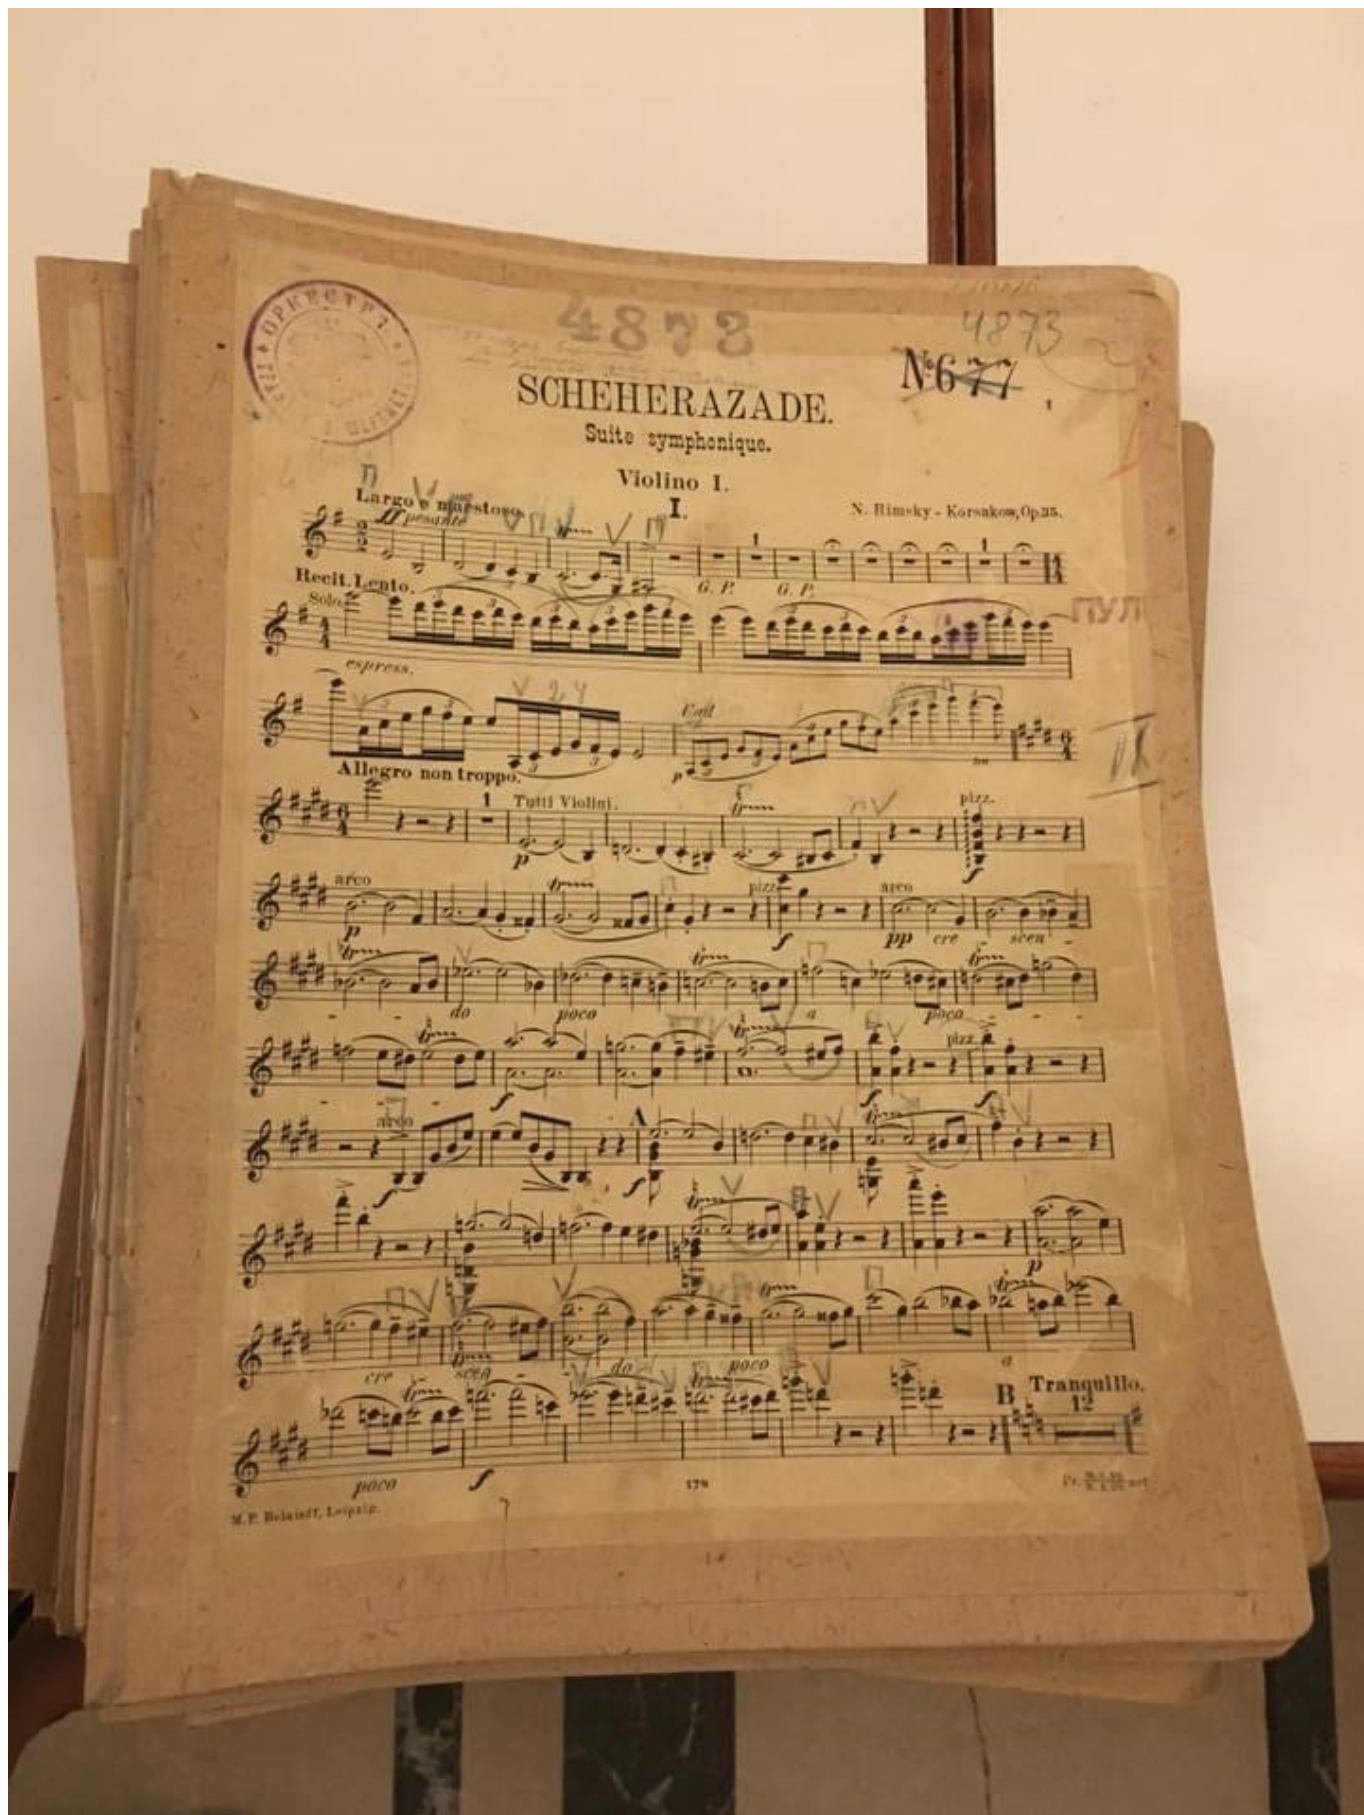 ОРКЕСТРЪ
4873
4873
№677
1
SCHEHERAZADE.
Suite symphonique.
Violino I.
I.
N. Rimsky-Korsakow, Op.35.
Largo e maestoso.
ff pesante
1 1
G. P. G. P.
Recit. Lento.
Solo.
ПУЛ
3 3 3 3 3 3
espress.
V 2 4
3 3
p
Allegro non troppo.
1 Tutti Violini. pizz.
p f
arco pizz. arco
p f pp cre scen
do poco a poco
pizz.
f f f
arco A
f f
p
cre scen do poco a
B Tranquillo.
12
poco f
M. P. Belaieff, Leipzig.